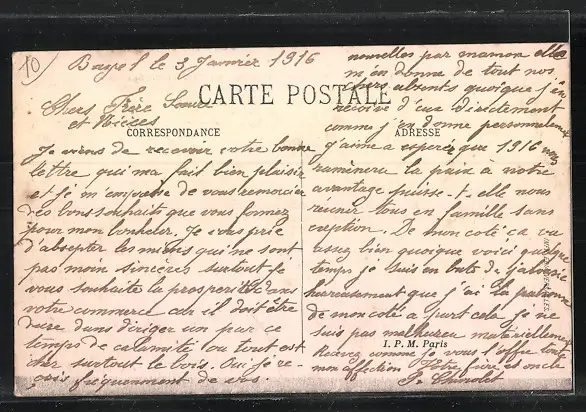 10
Bayel le 3 Janvier 1916
Chers Frère Soeur
et Nièces
CARTE POSTALE
CORRESPONDANCE
ADRESSE
Je viens de recevoir votre bonne
lettre qui ma fait bien plaisir
et je m'empresse de vous remercier
des bons souhaits que vous formez
pour mon bonheur. Je vous prie
d'absepter les miens qui ne sont
pas moin sincères surtout je
vous souhaite la prosperité dans
votre commerce car il doit être
dure dans diriger un par ce
temps de calamité ou tout est
cher surtout le bois. Oui je re-
çois fréquemment de vos
nouvelles par maman elle
m'en donne de tout nos
chers absents quoique j'en
reçoive d'eux directement
comme j'en donne personnelement
j'aime a esperer que 1916 nous
ramènera la paix à notre
avantage puisse-t-elle nous
réunir tous en famille sans
exception. De mon coté ça va
assez bien quoique voici quelque
temps je suis en bute de jalousie
heureusement que j'ai la patronne
de mon coté a part cela je ne
suis pas malheureu matériellement
Recevez comme je vous l'offre toute
mon affection Votre frère et oncle
I. P. M. Paris